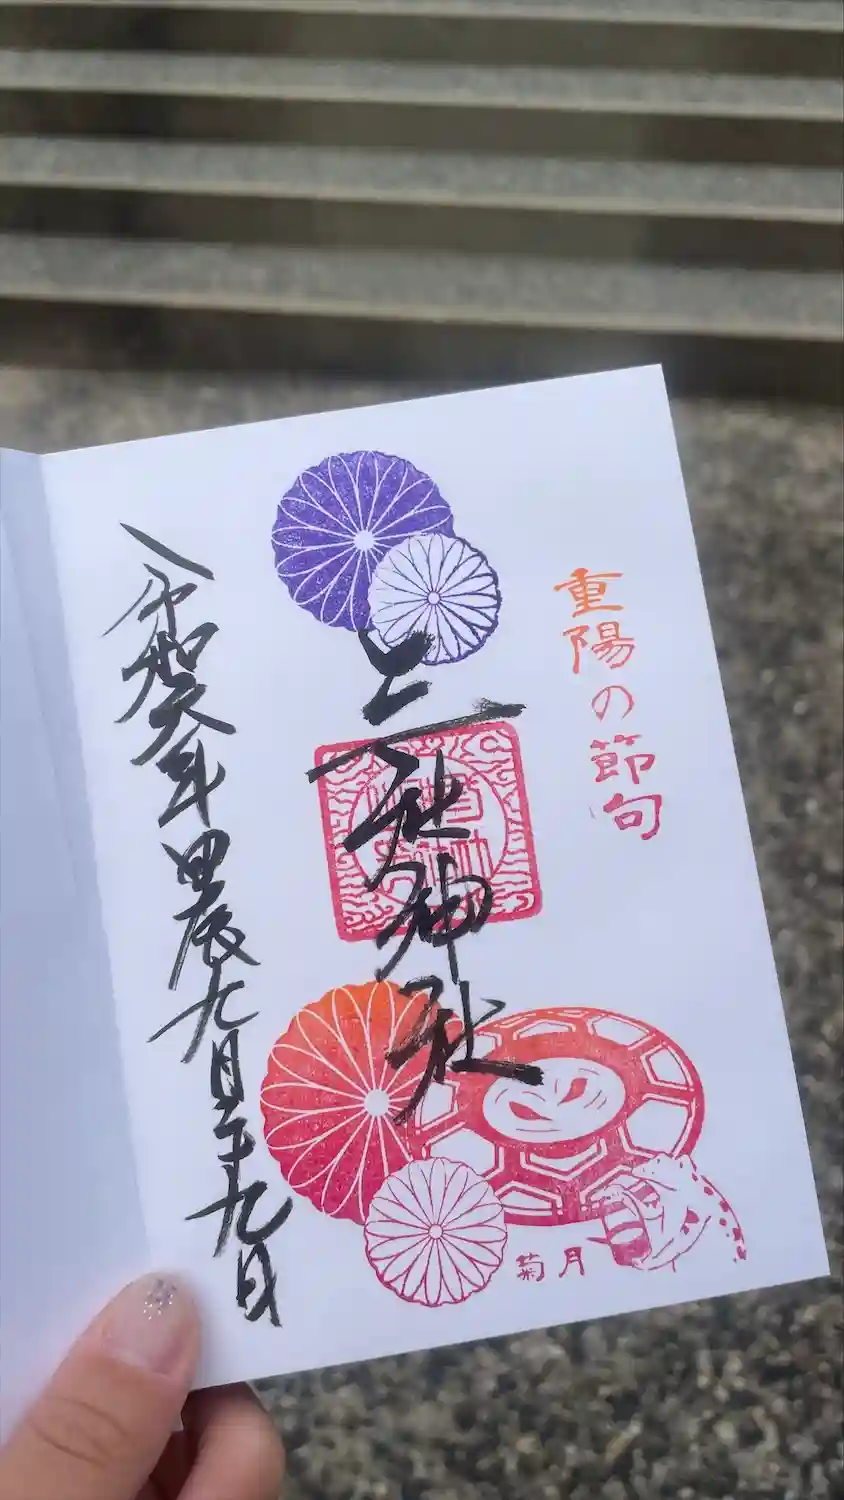 重陽の節句
三社神社
菊月
令和六年甲辰九月二十九日